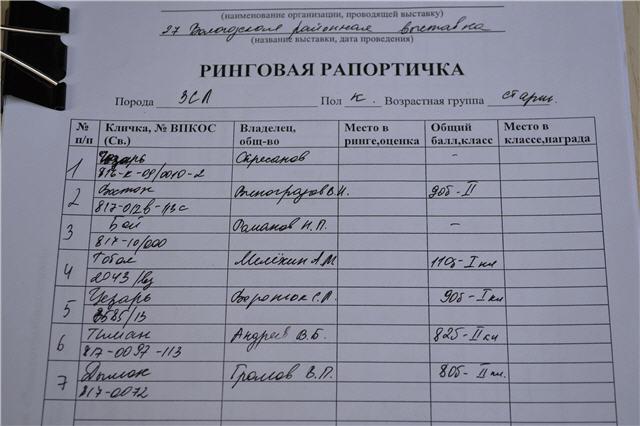 (наименование организации, проводящей выставку)
27 Вологодская районная выставка
(название выставки, дата проведения)
РИНГОВАЯ РАПОРТИЧКА
Порода ЗСЛ Пол К. Возрастная группа старш.
№ п/п Кличка, № ВПКОС (Св.) Владелец, общ-во Место в ринге,оценка Общий балл,класс Место в классе,награда
1 Цезарь –
2 Восток Виноградов В.И. 90б-II
817-012в-113с
3 Бой Романов Н.П. –
817-10/000
4 Тобол Мелёхин А.М. 110б-I кл
2043/вз
5 Цезарь 90б-I кл
8585/13
6 Тиман Андреев В.Б. 82б-II кл
817-0097-113
7 Дымок Громов В.П. 80б-II кл.
817-0072